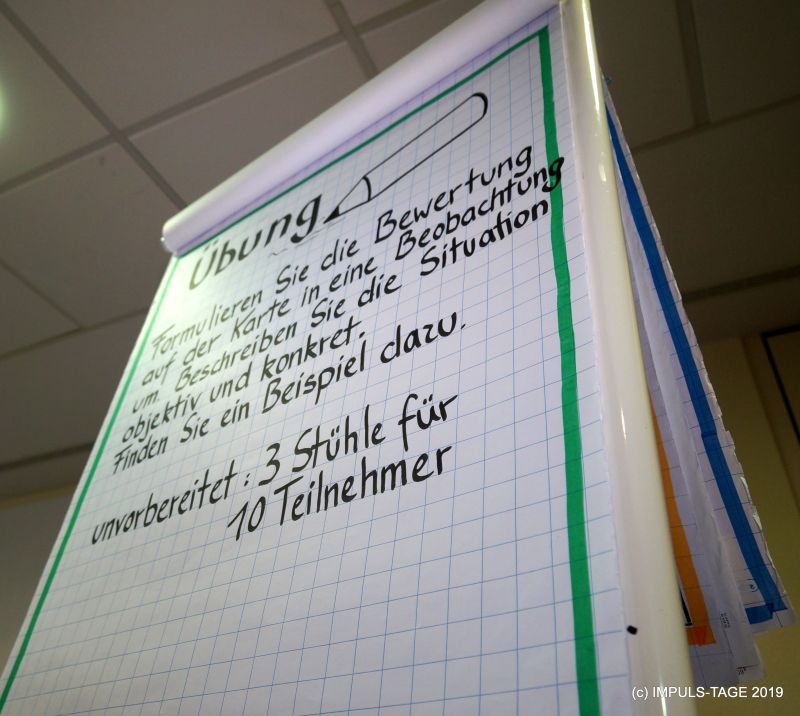 Übung
Formulieren Sie die Bewertung
auf der Karte in eine Beobachtung
um. Beschreiben Sie die Situation
objektiv und konkret.
Finden Sie ein Beispiel dazu.
unvorbereitet: 3 Stühle für
10 Teilnehmer
(c) IMPULS-TAGE 2019